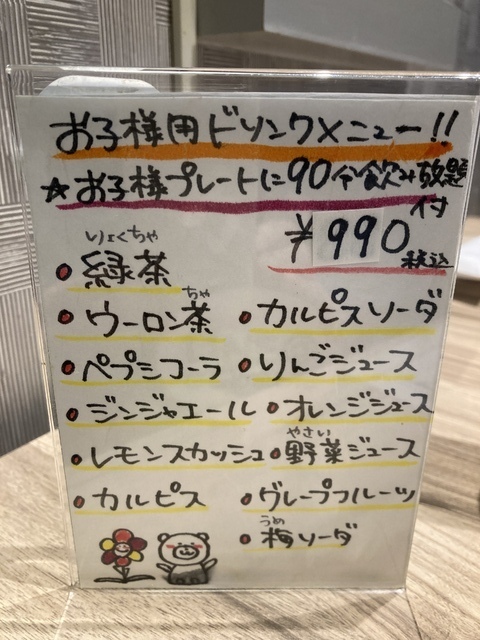 お子様用ドリンクメニュー!!
☆お子様プレートに90分飲み放題付
¥990税込
りょくちゃ
緑茶
ちゃ
ウーロン茶
ペプシコーラ
ジンジャエール
レモンスカッシュ
カルピス
カルピスソーダ
りんごジュース
オレンジジュース
やさい
野菜ジュース
グレープフルーツ
うめ
梅ソーダ